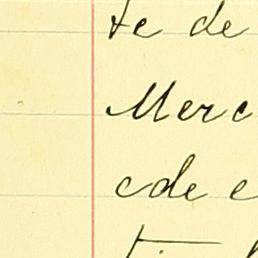 te de
Merc
cde e